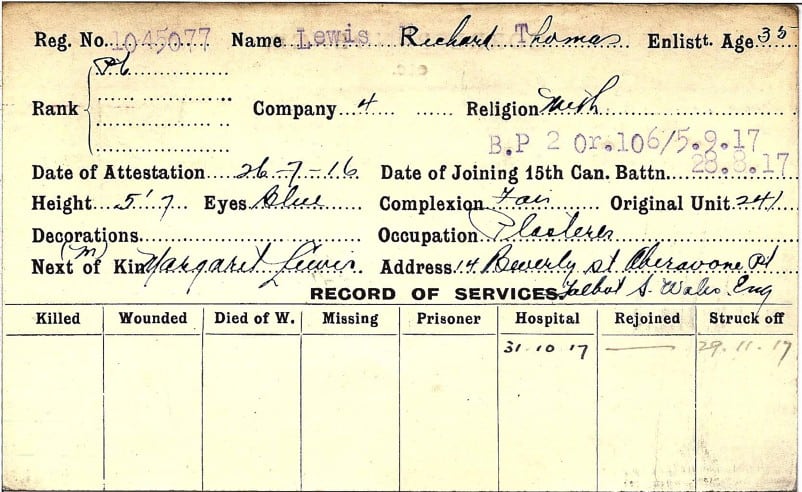 Reg. No. 1045077 Name Lewis Richard Thomas Enlistt. Age 35
Pt
Rank Company 4 Religion Meth
B.P 2 Or.106/5.9.17
Date of Attestation 26-7-16 Date of Joining 15th Can. Battn. 28.8.17
Height 5'7 Eyes Blue Complexion Fair Original Unit 241
Decorations Occupation Plasterer
(M)
Next of Kin Margaret Lewis Address 14 Beverly st Aberavone Pt
RECORD OF SERVICES Talbot S. Wales Eng
Killed Wounded Died of W. Missing Prisoner Hospital Rejoined Struck off
31.10 17 29.11.17